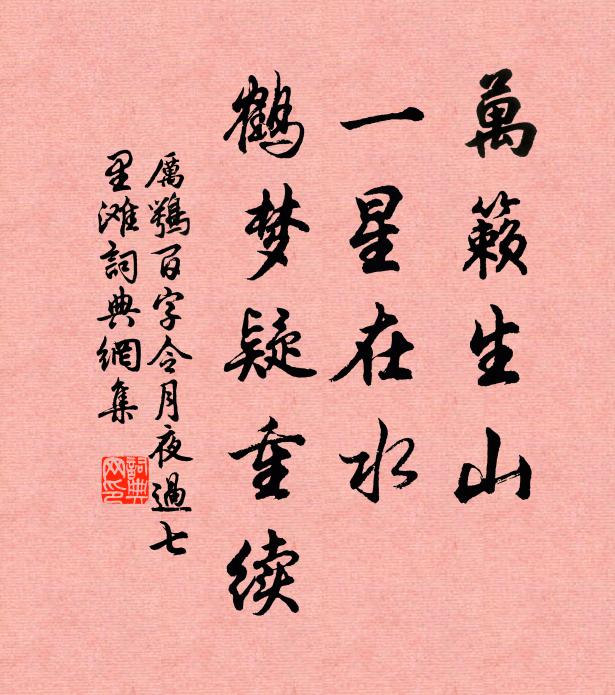 萬籁生山
一星在水
鹤梦疑重续
厲鶚百字令月夜過七
里滩詞典網集
詞典网印